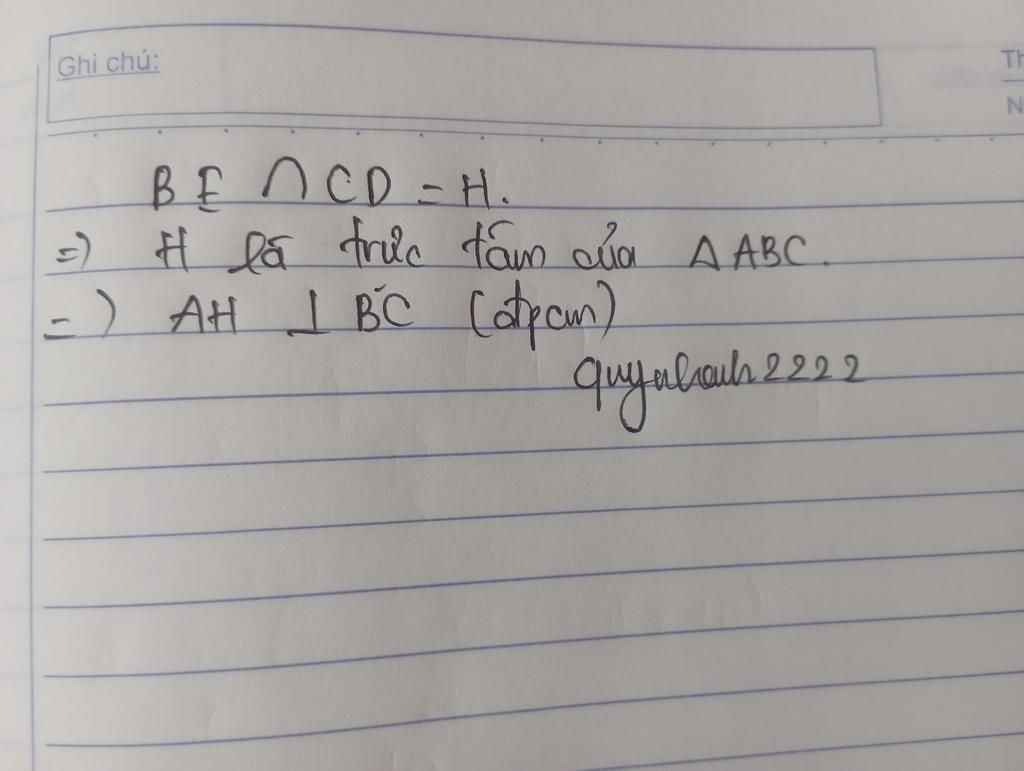 Ghi chú:
Th
N
BE ∩ CD = H.
=) H là trực tâm của Δ ABC.
=) AH ⊥ BC (đpcm)
quynhanh2222